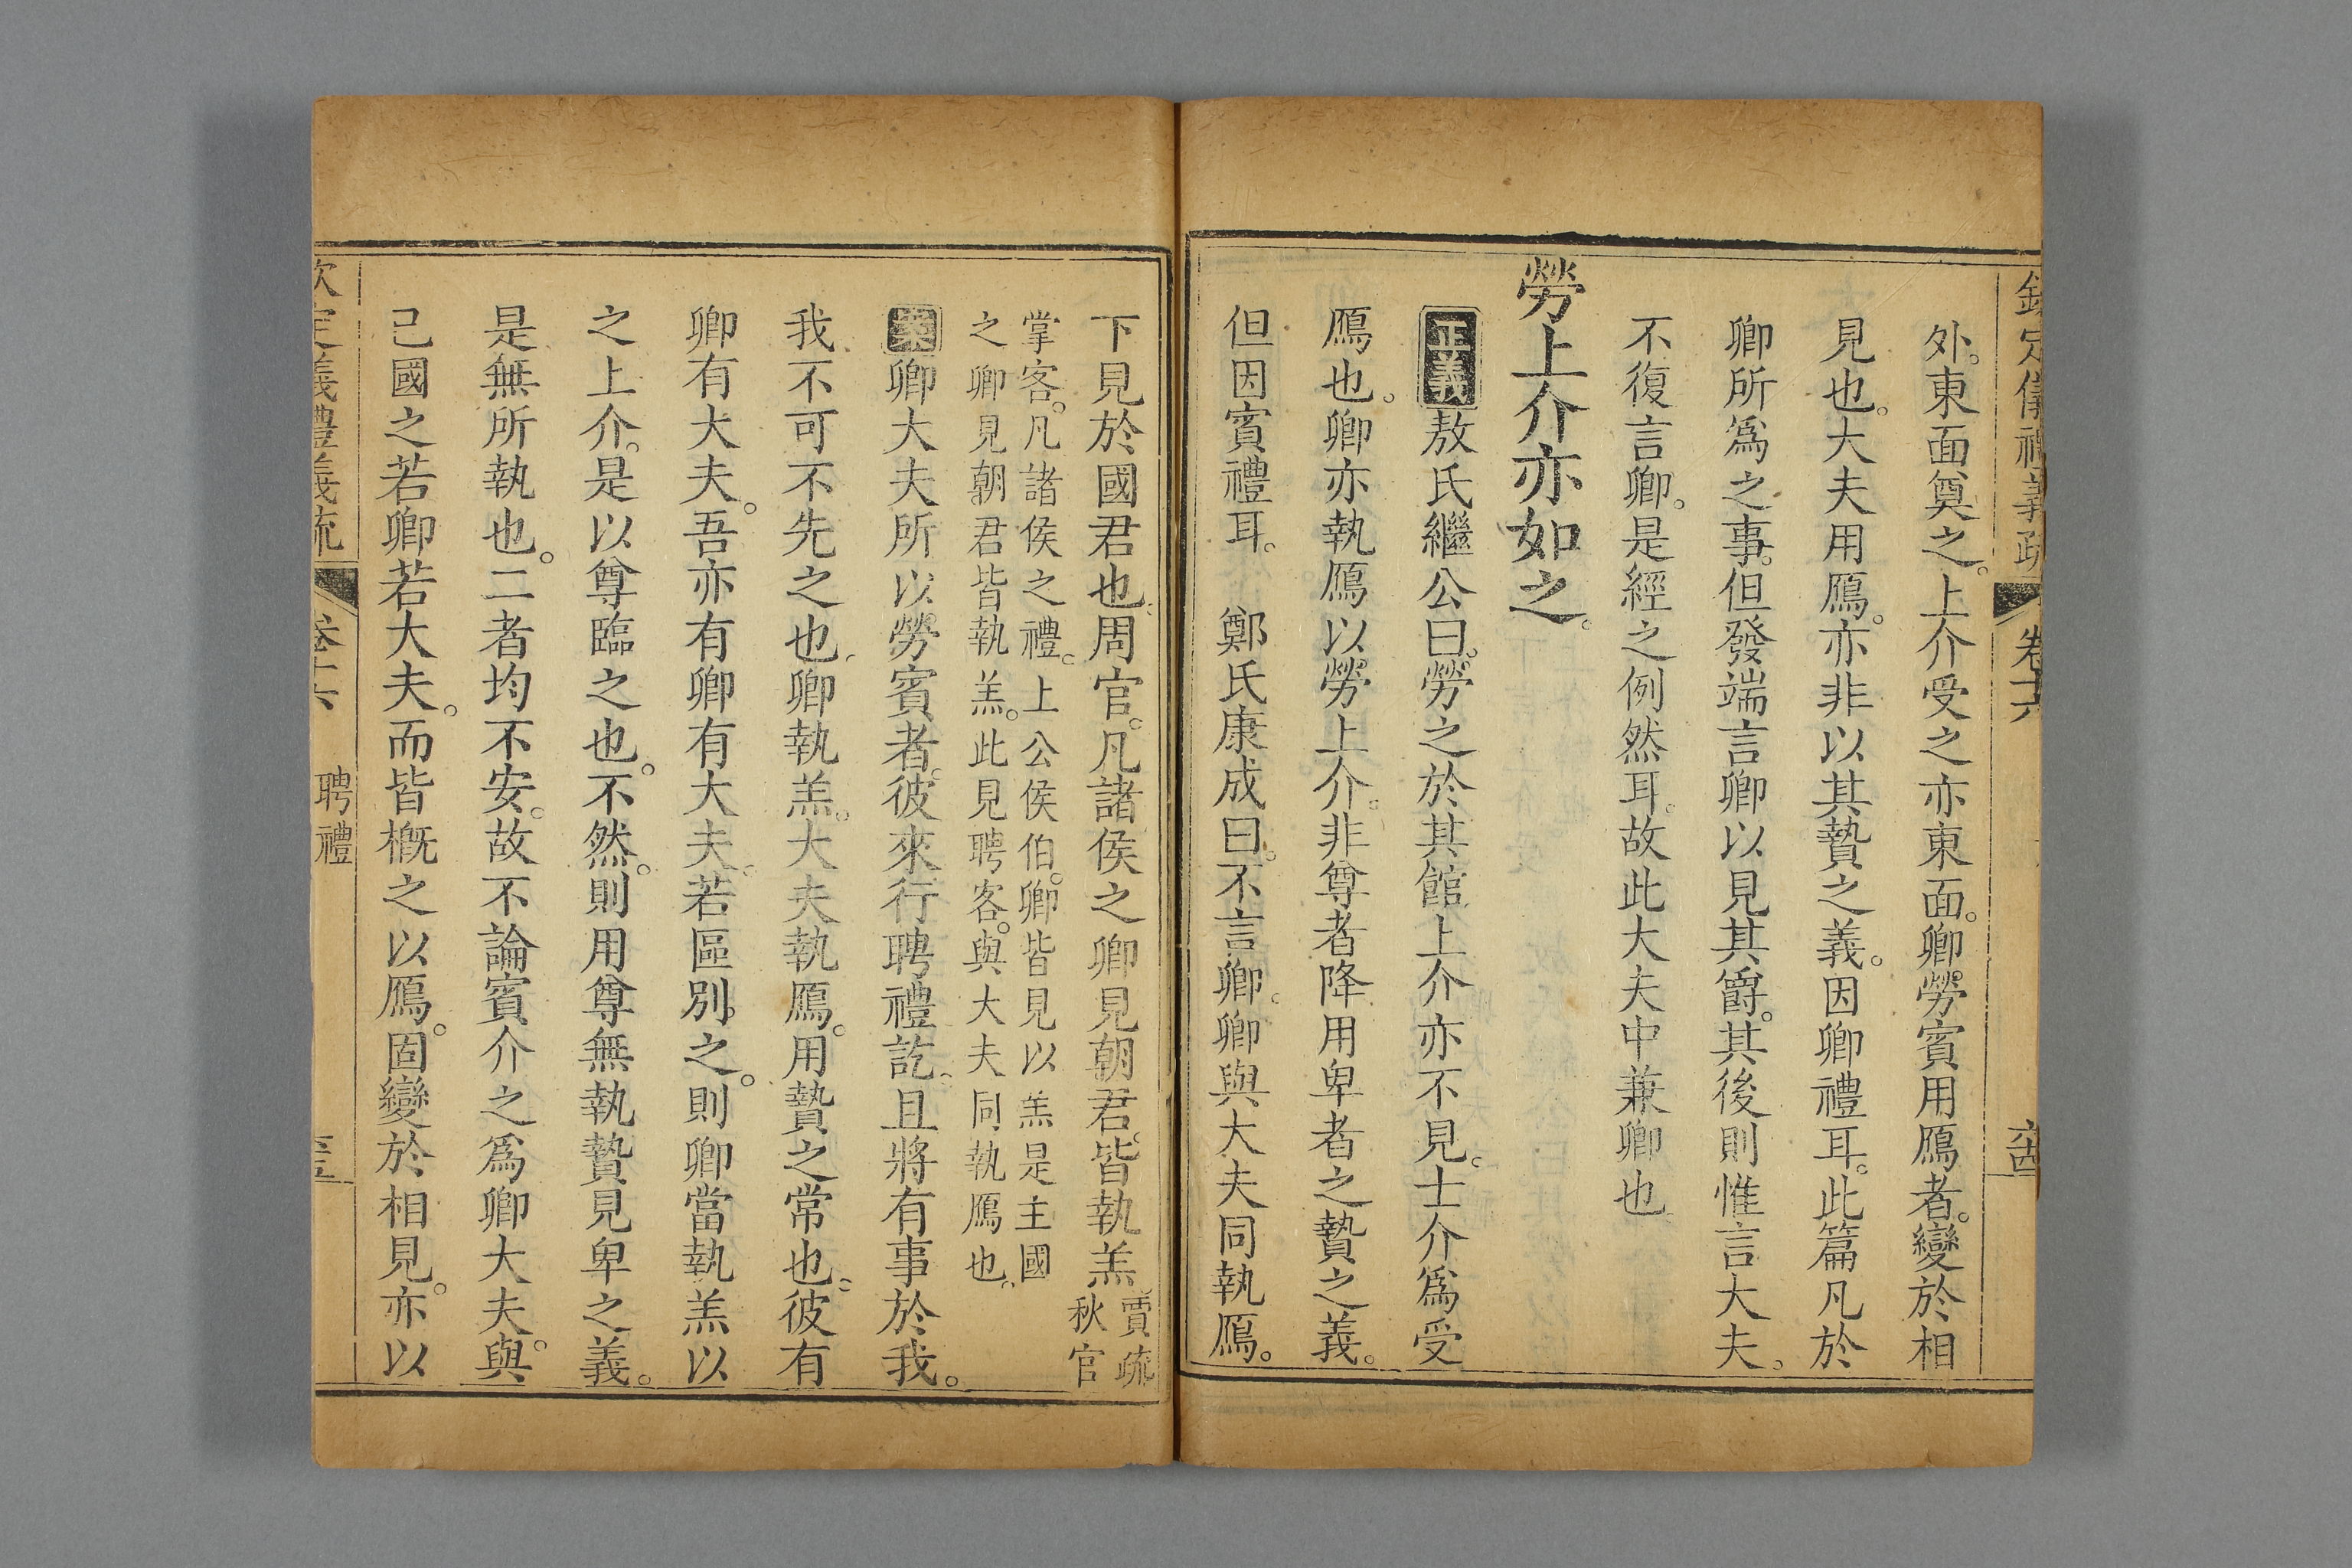 欽定儀禮義疏　卷十六　六十四
外。東面奠之。上介受之亦東面。卿勞賓用鴈者。變於相
見也。大夫用鴈。亦非以其贄之義。因卿禮耳。此篇凡於
卿所為之事。但發端言卿以見其爵。其後則惟言大夫。
不復言卿。是經之例然耳。故此大夫中兼卿也
勞上介亦如之。
正義敖氏繼公曰。勞之於其館上介亦不見。士介為受
鴈也。卿亦執鴈以勞上介。非尊者降用卑者之贄之義。
但因賓禮耳。　鄭氏康成曰。不言卿。卿與大夫同執鴈。
下見於國君也。周官。凡諸侯之卿見朝君。皆執羔賈疏秋官
掌客。凡諸侯之禮。上公侯伯。卿皆見以羔是主國
之卿見朝君皆執羔。此見聘客。與大夫同執鴈也。
案卿大夫所以勞賓者。彼來行聘禮訖。且將有事於我。
我不可不先之也。卿執羔。大夫執鴈。用贄之常也。彼有
卿有大夫。吾亦有卿有大夫。若區別之。則卿當執羔以
之上介。是以尊臨之也。不然。則用尊無執贄見卑之義。
是無所執也。二者均不安。故不論賓介之為卿大夫。與
己國之若卿若大夫。而皆槪之以鴈。固變於相見。亦以
欽定義禮義疏　卷十六　聘禮　六十五